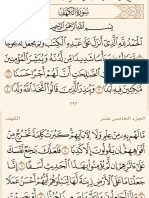 سُورَةُ الكَهْفِ
بِسْمِ ٱللَّهِ ٱلرَّحْمَٰنِ ٱلرَّحِيمِ
ٱلْحَمْدُ لِلَّهِ ٱلَّذِىٓ أَنزَلَ عَلَىٰ عَبْدِهِ ٱلْكِتَٰبَ وَلَمْ يَجْعَل لَّهُۥ عِوَجَا ۜ ١
قَيِّمًا لِّيُنذِرَ بَأْسًا شَدِيدًا مِّن لَّدُنْهُ وَيُبَشِّرَ ٱلْمُؤْمِنِينَ ٱلَّذِينَ
يَعْمَلُونَ ٱلصَّٰلِحَٰتِ أَنَّ لَهُمْ أَجْرًا حَسَنًا ٢
مَّٰكِثِينَ فِيهِ أَبَدًا ٣ وَيُنذِرَ ٱلَّذِينَ قَالُوا۟ ٱتَّخَذَ ٱللَّهُ وَلَدًا ٤
٢٩٣
الجزء الخامس عشر الكهف
مَّا لَهُم بِهِۦ مِنْ عِلْمٍ وَلَا لِءَابَآئِهِمْ كَبُرَتْ كَلِمَةً تَخْرُجُ مِنْ
أَفْوَٰهِهِمْ إِن يَقُولُونَ إِلَّا كَذِبًا ٥ فَلَعَلَّكَ بَٰخِعٌ نَّفْسَكَ
عَلَىٰٓ ءَاثَٰرِهِمْ إِن لَّمْ يُؤْمِنُوا۟ بِهَٰذَا ٱلْحَدِيثِ أَسَفًا ٦ إِنَّا جَعَلْنَا
مَا عَلَى ٱلْأَرْضِ زِينَةً لَّهَا لِنَبْلُوَهُمْ أَيُّهُمْ أَحْسَنُ عَمَلًا ٧